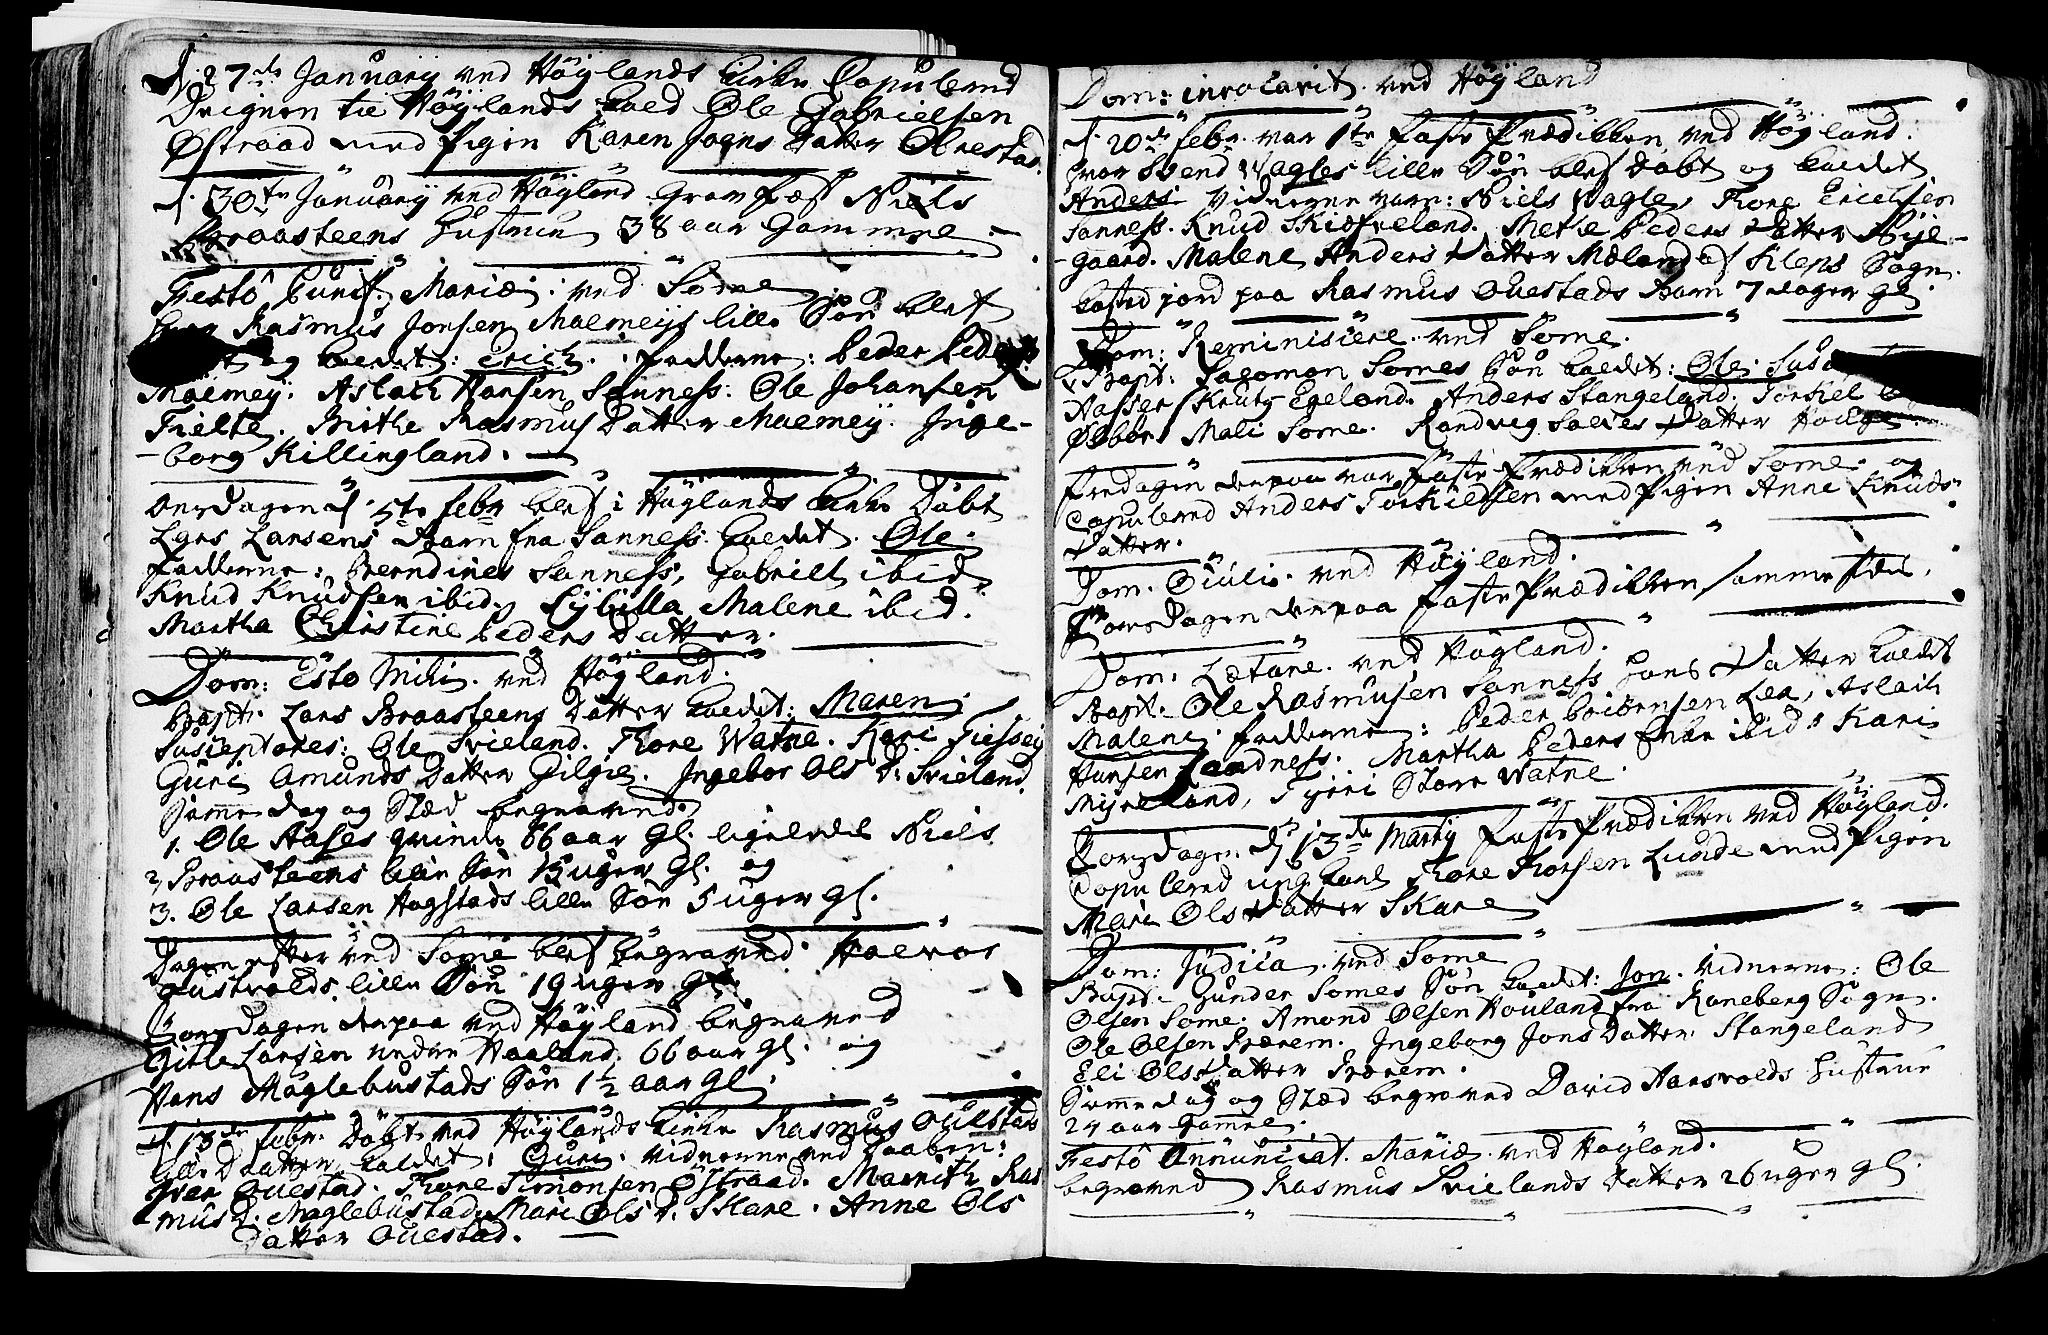 d. 27de January ved Höylands Kirke Copulered
Drengen til Höylands Kald Ole Gabrielsen
Østraad med Pigen Karen Jogns Datter Olrestad.
d. 30te January ved Höyland Grav fæst Niels
Braasteens Hustrue 38 aar Gammel.
Festo Purif. Mariæ ved Some
Rasmus Jonsen Malmeys lille Sön blef
og kaldet: Erich. Fadderne: Peder Peders
Malmey. Aslach Hansen Sanness. Ole Johansen
Tielte. Birthe Rasmus Datter Malmey. Inge-
-borg Killingland.
Onsdagen d. 5te Febr blef i Höylands Kirke Döbt
Lars Larsens Barn fra Sanness. kaldet. Ole.
Fadderne: Berndines Sanness, Gabriell ibid
Knud Knudsen ibid. Sybilla Malene ibid.
Martha Christine Peders Datter.
Dom: Esto Mihi. ved Höyland.
Bapt. Lars Braasteens Datter kaldet: Maren
Susceptores: Ole Svieland. Thore Watne. Kari Tiessey
Guri Amunds Datter Gilgie. Ingebor Ols D: Svieland.
Samme dag og Stæd begraved.
1. Ole Aases qvinde 66 aar Gl. ligeledes Niels
2, Braasteens liden Sön 15 uger Gl. og
3. Ole Larsen Hogstads lille Sön 5 uger gl.
Dagen efter ved Some blef begraved. Halvor
Gustvolds lille Sön 19 uger Gl.
Torsdagen derpaa ved Höyland begraved
Gitle Larsen nedre Haaland. 66 aar gl. og
Hans Maglebustads Sön 1 1/2 aar Gl.
d. 13de Febr. Döbt ved Höylands Kirke Rasmus Ouestads
lille Datter kaldet: Guri. Vidnerne ved Daaben:
Iver Ouestad. Thore Simonsen Östraad. Marith Ras
-mus D. Maglebustad. Mari Ols D. Skare. Anne Ols
Datter Ouestad.
Dom: invocavit ved Höyland
d. 20de Febr. var 1te Faste Prædikken ved Höyland.
hvor Svend Vagles lille Sön blef Döbt og kaldet
Anders Vidnerne vare: Niels Vagle, Thore Erichsen
Sanness. Knud Skiefveland. Mette Peders Datter Bije-
-gaard. Malene Anders Datter Mæland af Kleps Sogn.
kasted jord paa Rasmus Ouestads Barn 7 dager gl.
Dom: Reminiscere ved Some.
Bapt: Sagomon Somes Sön kaldet: Ole. Sus
Aasser Knuts Egeland. Anders Stangeland. Torkel
Ølbör. Mali Some. Randveg Salves Datter Houge.
Fredagen derpaa var Faste Prædikken ved Some. og
Copulered Anders Torkielsen med Pigen Anne Knuds
Datter.
Dom. Oculi. ved Höyland.
Torsdagen derpaa Faste Prædikken samme stæd.
Dom: Lætare. ved Höyland.
Bapt. Ole Rasmusen Sanness Hans Datter kaldet
Malene. Fadderne: Peder Beiörnsen Lea, Aslach
Hansen Sandness. Martha Peders ibid. Kari
Myreland, Tyrri Store Watne.
Torsdagen d. 13de Marty Faste Prædikken ved Höyland.
Copulered ung karl Thore Thorsen Lunde med Pigen
Mari Ols Datter Skare
Dom: Judica. ved Some
Bapt. Gunder Somes Sön kaldet: Jon. Vidnerne: Ole
Olsen Some. Amond Olsen Houland fra Raneberg Sogn.
Ole Olsen Sværem. Ingeborg Jons Datter Stangeland
Eli Ols Datter Sværem.
Samme dag og Stæd begraved David Aarsvolds Hustrue
24 aar Gammel.
Festo Annunciat. Mariæ. ved Höyland.
begraved Rasmus Svielands Datter 26 uger gl.